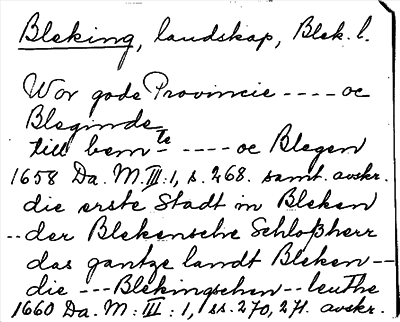 Bleking, landskap, Blek. l.
Wor gode Provincie ---- oc
Bleginde
till bem te ---- oc Blegen
1658 Da. M. III: 1, s. 268. samt. avskr.
die erste Stadt in Bleken
-- der Blekensche Schloßherr
das gantze landt Bleken --
die --- Blekingschen -- leuthe
1660 Da. M: III: 1, ss. 270, 271. avskr.